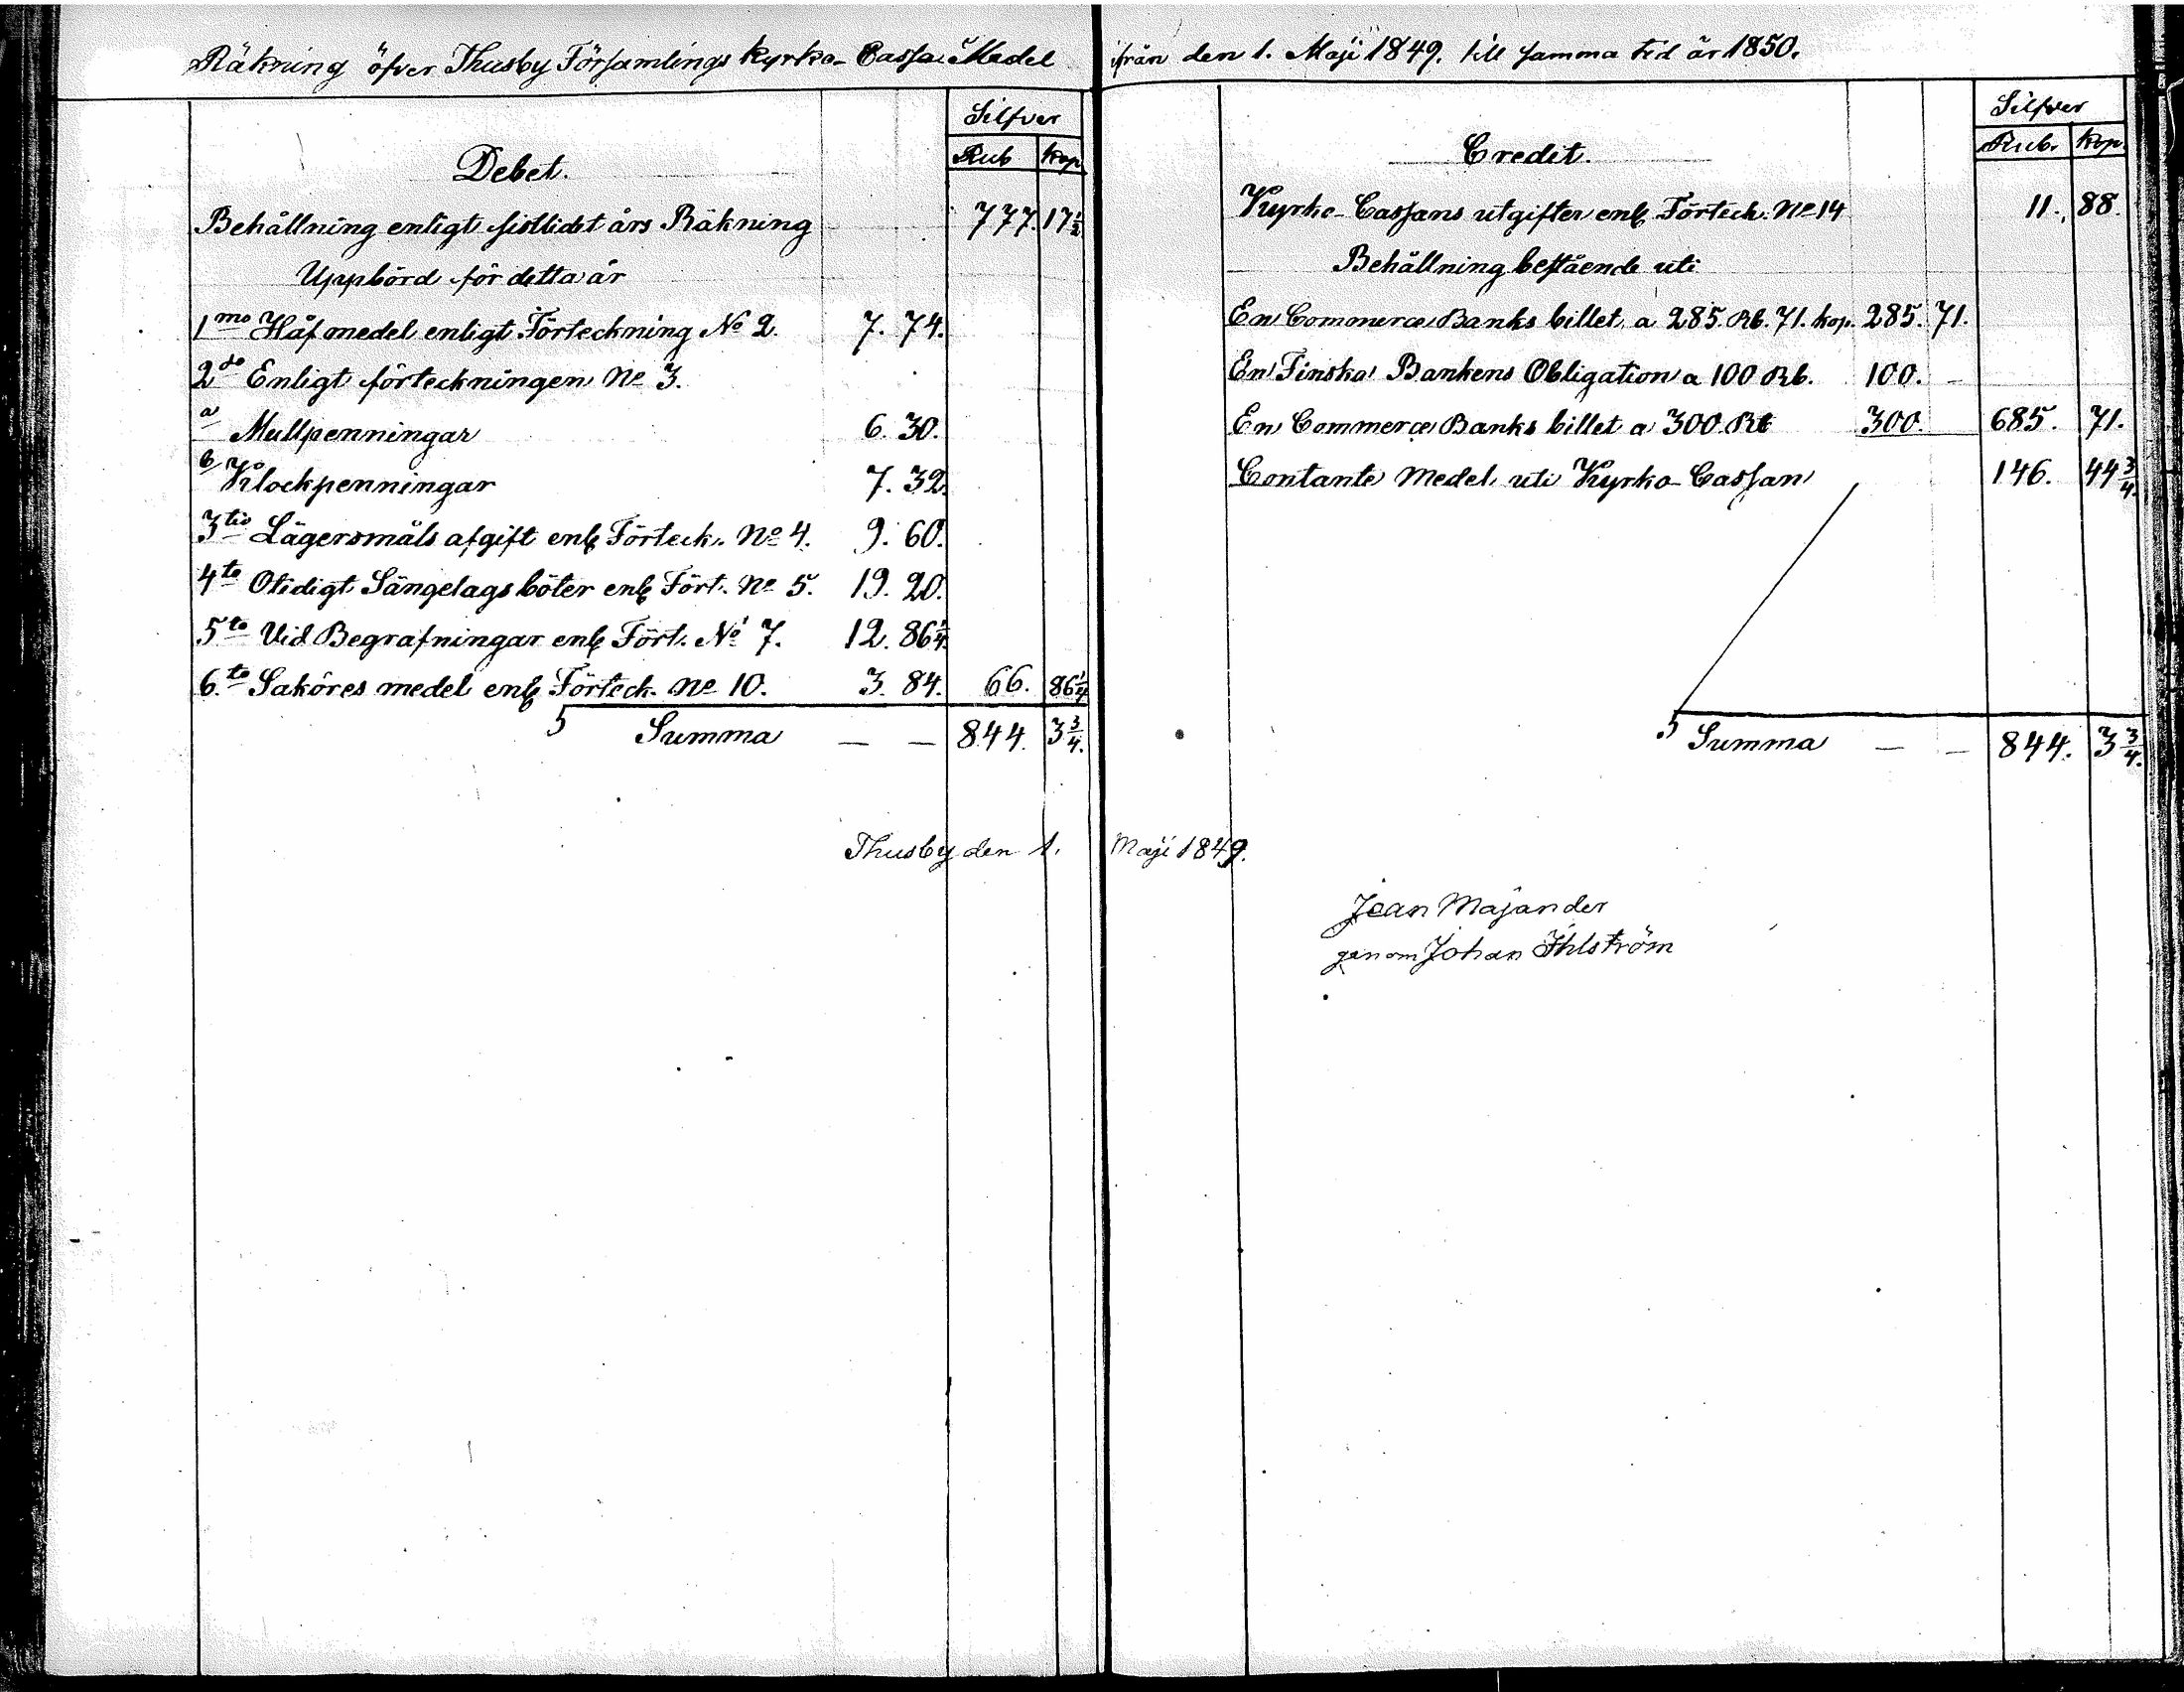 Räkning öfver Thusby Församlings Kyrko-Cassa Medel ifrån den 1. Maji 1849. till samma tid år 1850.
Silfver
Debet. Rub Kop
Behållning enligt sistlidet års Räkning 777. 17½
Uppbörd för detta år
1mo Håfmedel enligt Förteckning No 2. 7. 74.
2do Enligt förteckningen No 3.
a Mullpenningar 6. 30.
b Klockpenningar 7. 32.
3tio Lägersmåls afgift enl Förteck. No 4. 9. 60.
4to Otidigt Sängelags böter enl Fört. No 5. 19. 20.
5to Vid Begrafningar enl Fört. No 7. 12. 86¼.
6to Saköres medel enl Förteck. No 10. 3. 84. 66. 86¼
Summa — — 844. 3¾.
Silfver
Credit. Rub. Kop.
Kyrko-Cassans utgifter enl Förteck. No 14 11. 88.
Behållning bestående uti
En Commerce Banks billet a 285. Rb. 71. kop. 285. 71.
En Finska Bankens Obligation a 100 Rb. 100. –
En Commerce Banks billet a 300 Rb 300. 685. 71.
Contante Medel uti Kyrko-Cassan 146. 44¾.
Summa — — 844. 3¾.
Thusby den 1. Maji 1849.
Jean Majander
genom Johan Ihlström